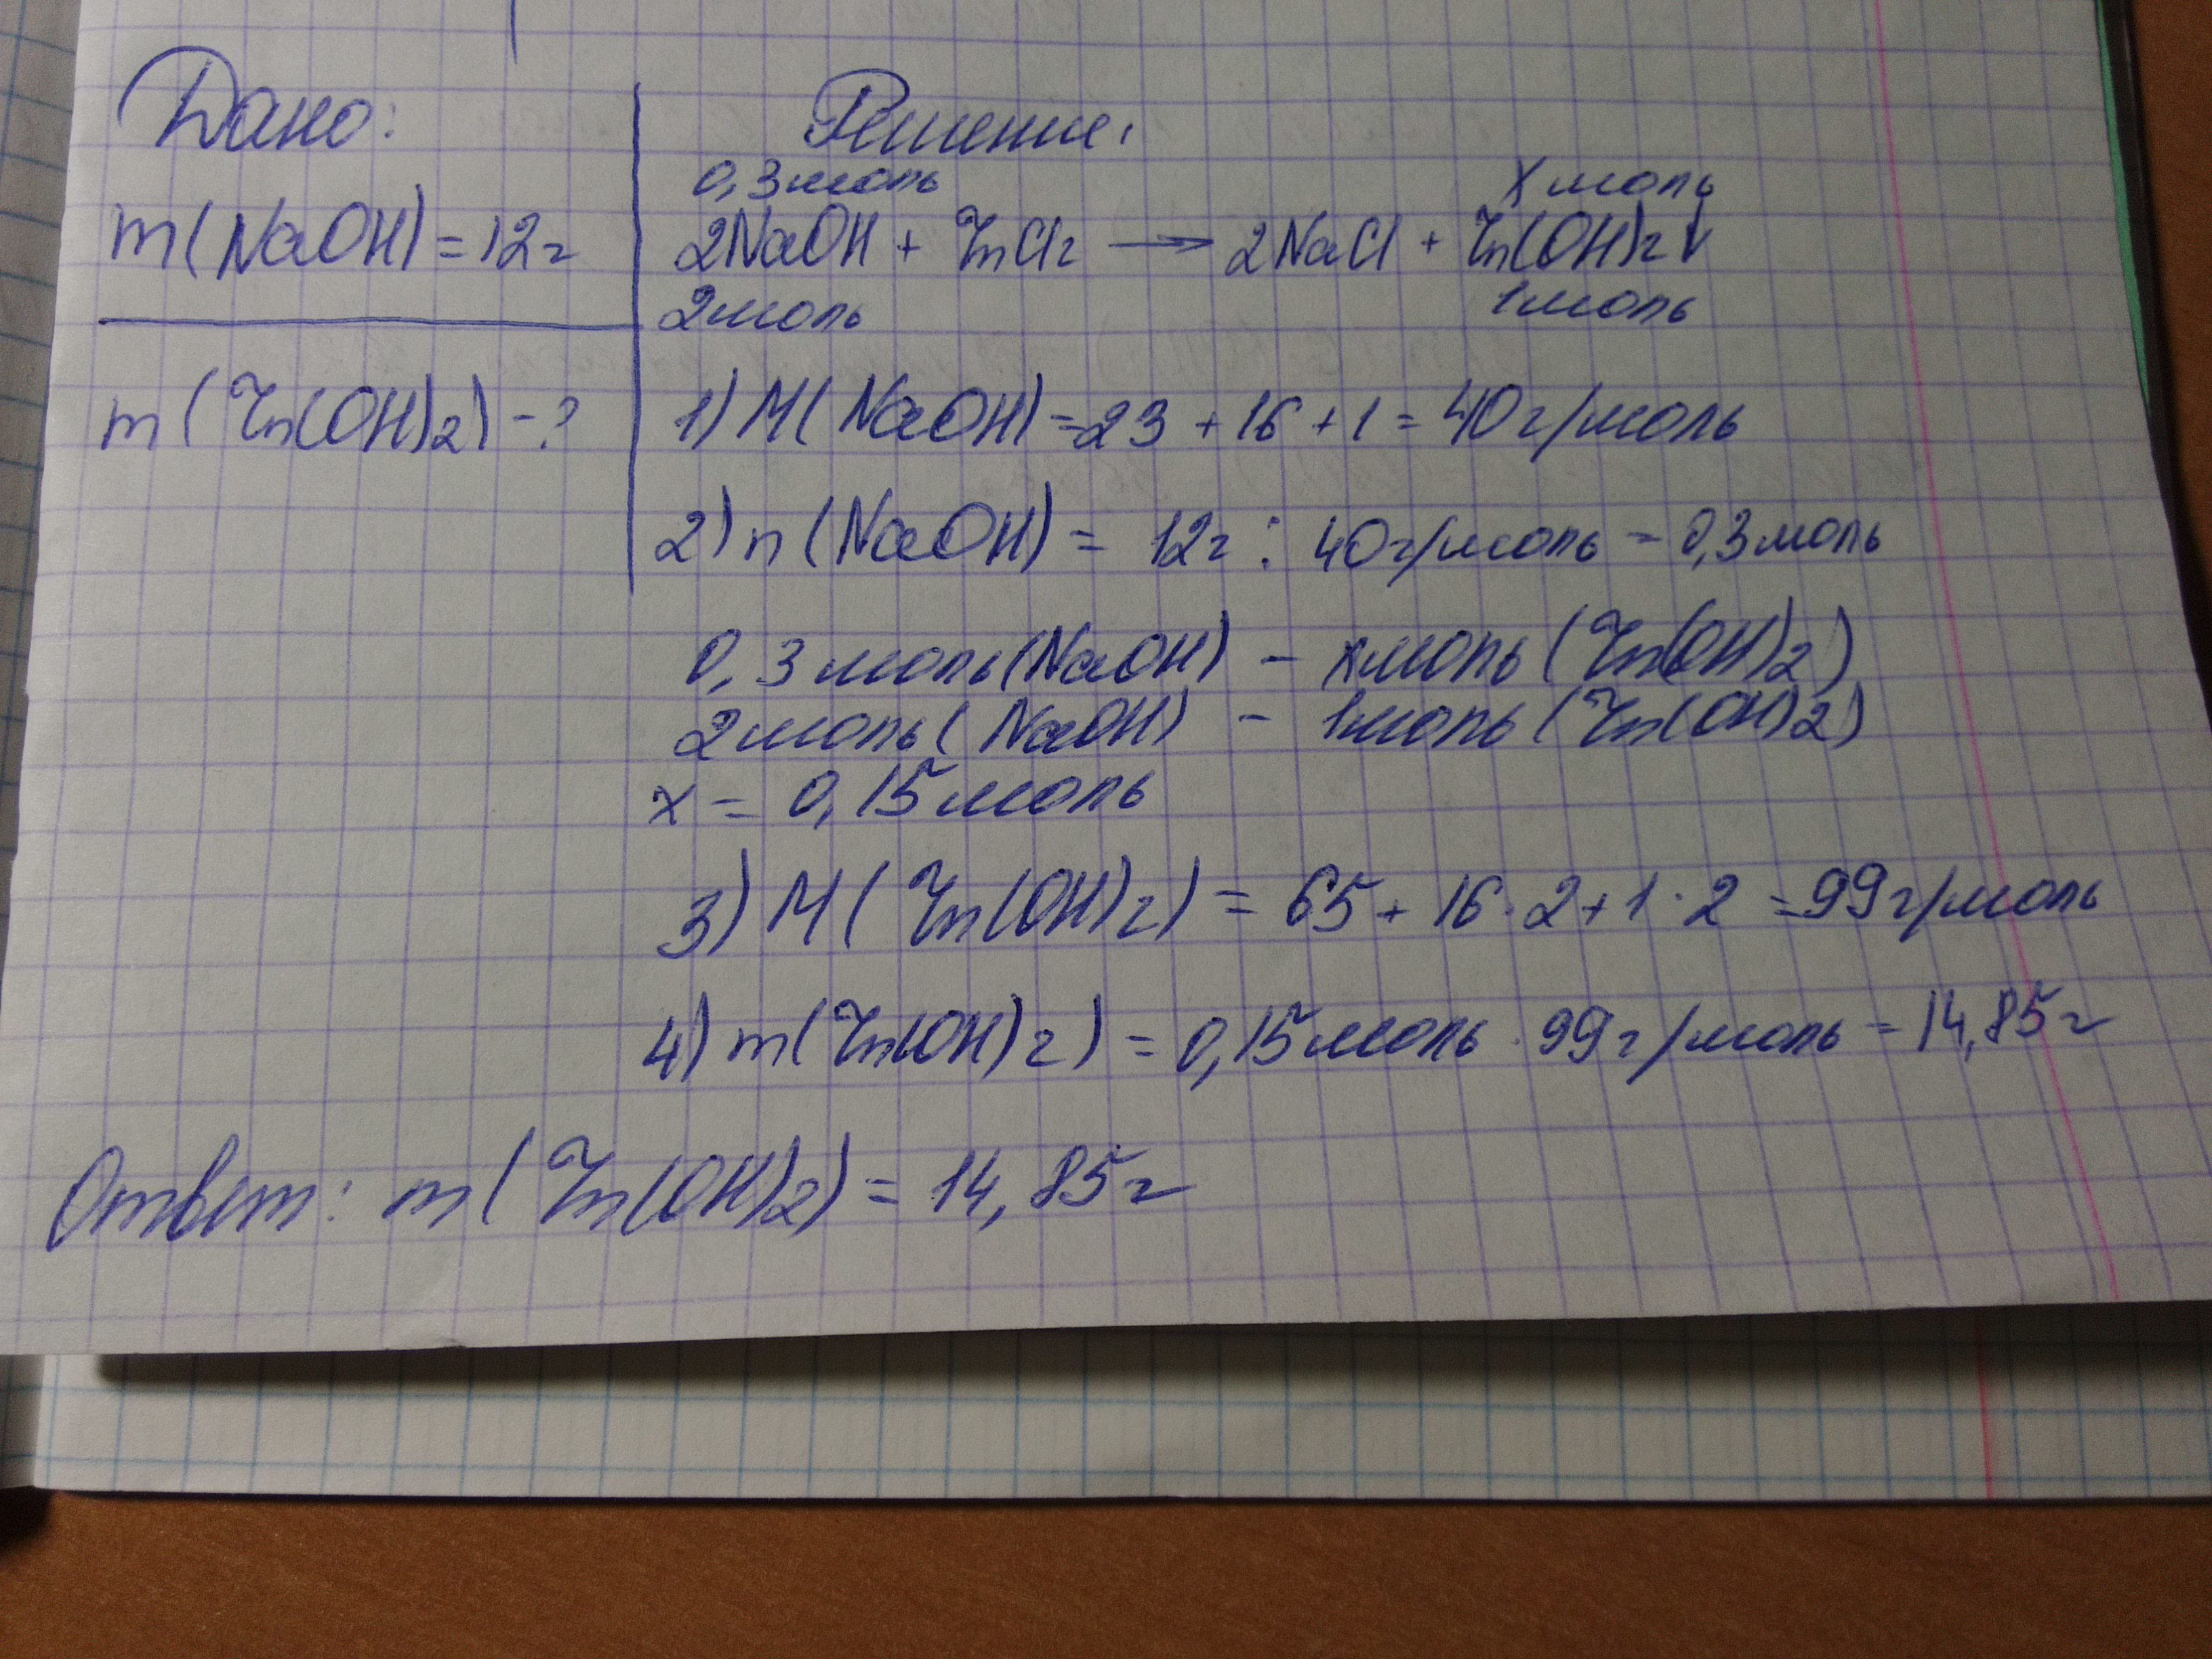 Дано:
m(NaOH)=12г
m(Zn(OH)2)-?
Решение:
0,3моль xмоль
2NaOH + ZnCl2 → 2NaCl + Zn(OH)2↓
2моль 1моль
1) M(NaOH)=23+16+1=40г/моль
2) n(NaOH) = 12г : 40г/моль = 0,3моль
0,3моль(NaOH) - xмоль(Zn(OH)2)
2моль(NaOH) - 1моль(Zn(OH)2)
x = 0,15моль
3) M(Zn(OH)2) = 65+16·2+1·2 =99г/моль
4) m(Zn(OH)2) = 0,15моль·99г/моль=14,85г
Ответ: m(Zn(OH)2)=14,85г